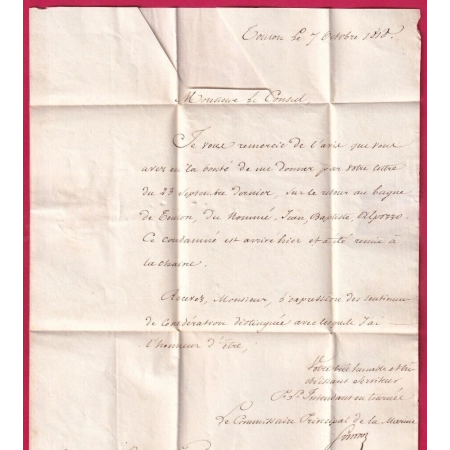 Toulon le 7 Octobre 1818.
Monsieur le Consul,
Je vous remercie de l'avis que vous
avez eu la bonté de me donner par votre lettre
du 23 Septembre dernier, sur le retour au bagne
de Toulon, du nommé Jean, Baptiste,
Ce condamné est arrivé hier et a été remis à
la chaine.
Recevez, Monsieur, l'expression des sentimens
de considération distinguée avec lesquels J'ai
l'honneur d'Être,
Votre très humble et très
obéissant Serviteur
Intendant en tournée
Le Commissaire Principal de la Marine